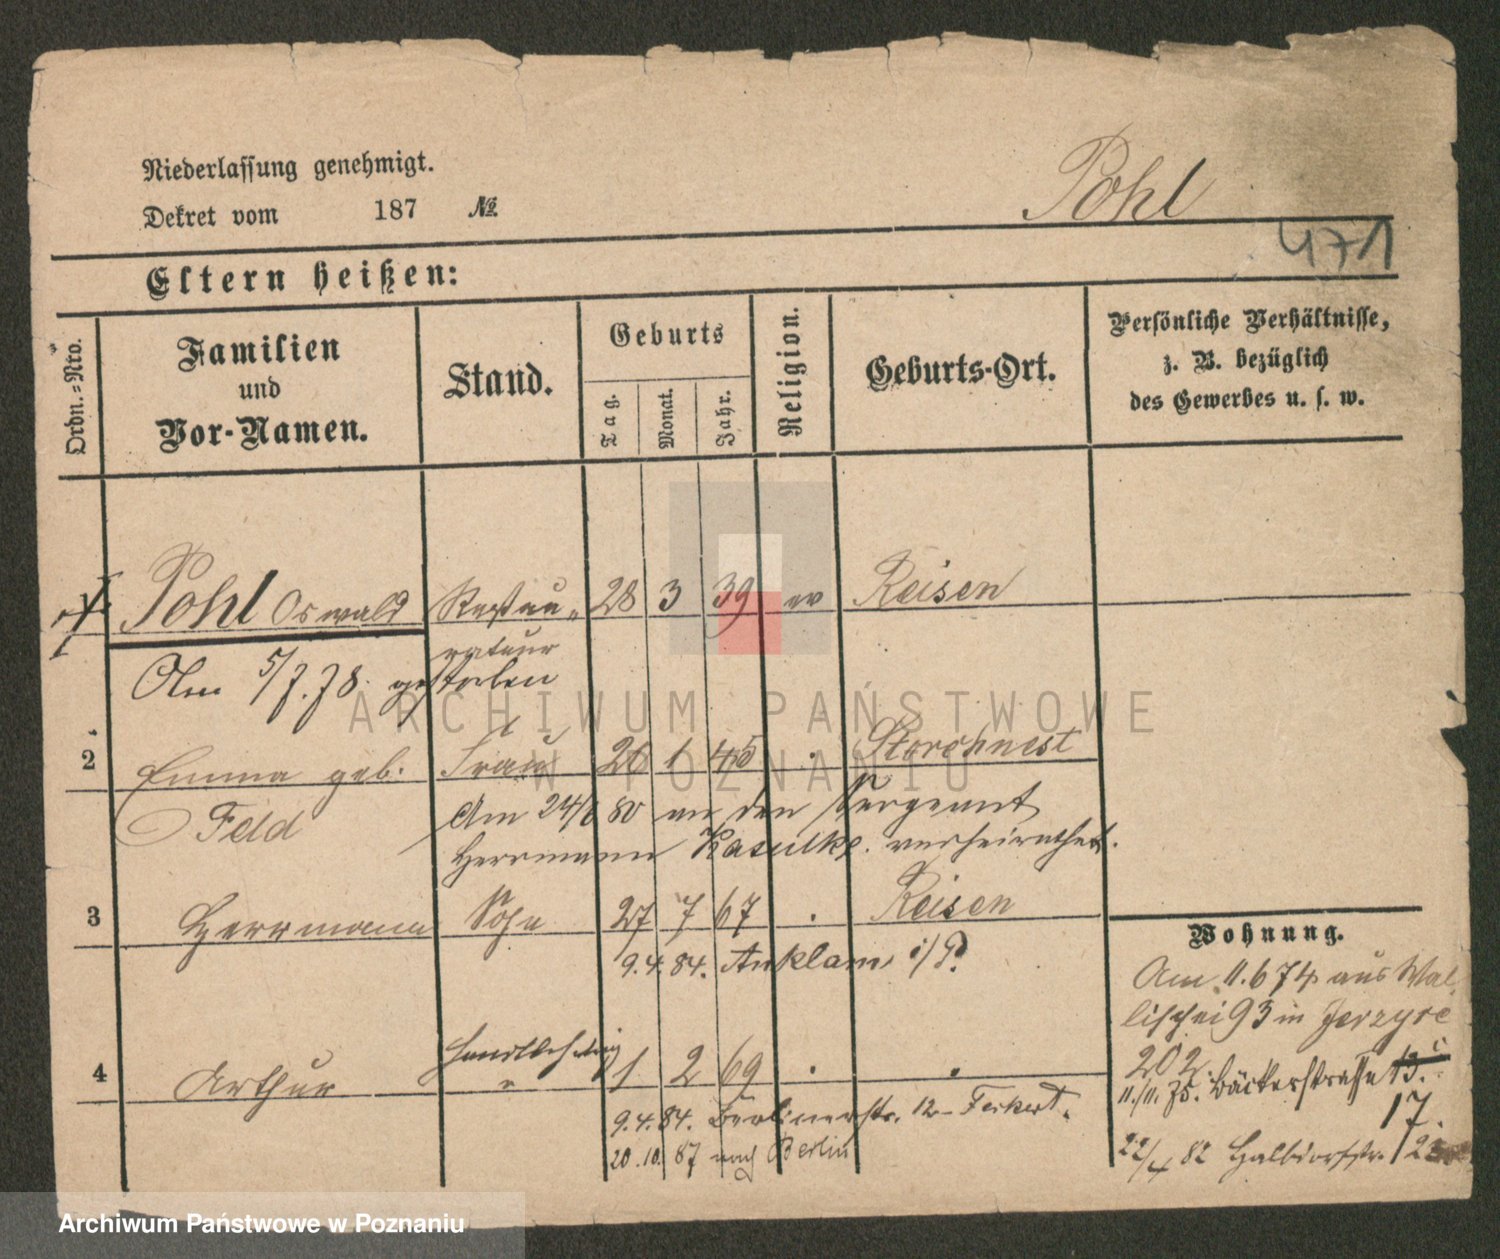 Niederlassung genehmigt.
Dekret vom 187 №
Pohl
471
Eltern heißen:
Ordn.-Nro.
Familien
und
Vor-Namen.
Stand.
Geburts
Tag.
Monat.
Jahr.
Religion.
Geburts-Ort.
Persönliche Verhältnisse,
z. B. bezüglich
des Gewerbes u. s. w.
Pohl Oswald Restau- 28 3 39 ev Reisen
rateur
Am 5/7.78. gestorben
2 Emma geb. Frau 26 1 45 . Storchnest
Feld
Am 24/6 80 an den Sergeant
Herrmann Kasulke. verheirathet.
3 Herrmann Sohn 27 7 67 . Reisen
9.4.84. Anklam i/P.
4 Arthur " 1 2 69 . .
9.4.84. Berlinerstr. 12
20.10.87 nach Berlin
Wohnung.
Am 11.6 74 aus Wal-
lischei 93 in Jerzyce
202
11./11. 75. Bäckerstrasse 13.
17.
22/4 82 Halbdorfstr.
ARCHIWUM PAŃSTWOWE
W POZNANIU
Archiwum Państwowe w Poznaniu